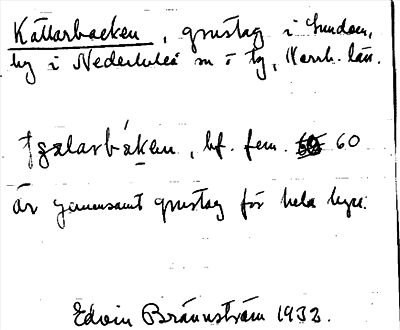 Källarbacken, grustag i Sundom,
by i Nederluleå sn o tg, Norrb. län.
bf. fem. 60
är gemensamt grustag för hela byn.
Edvin Brännström 1932.